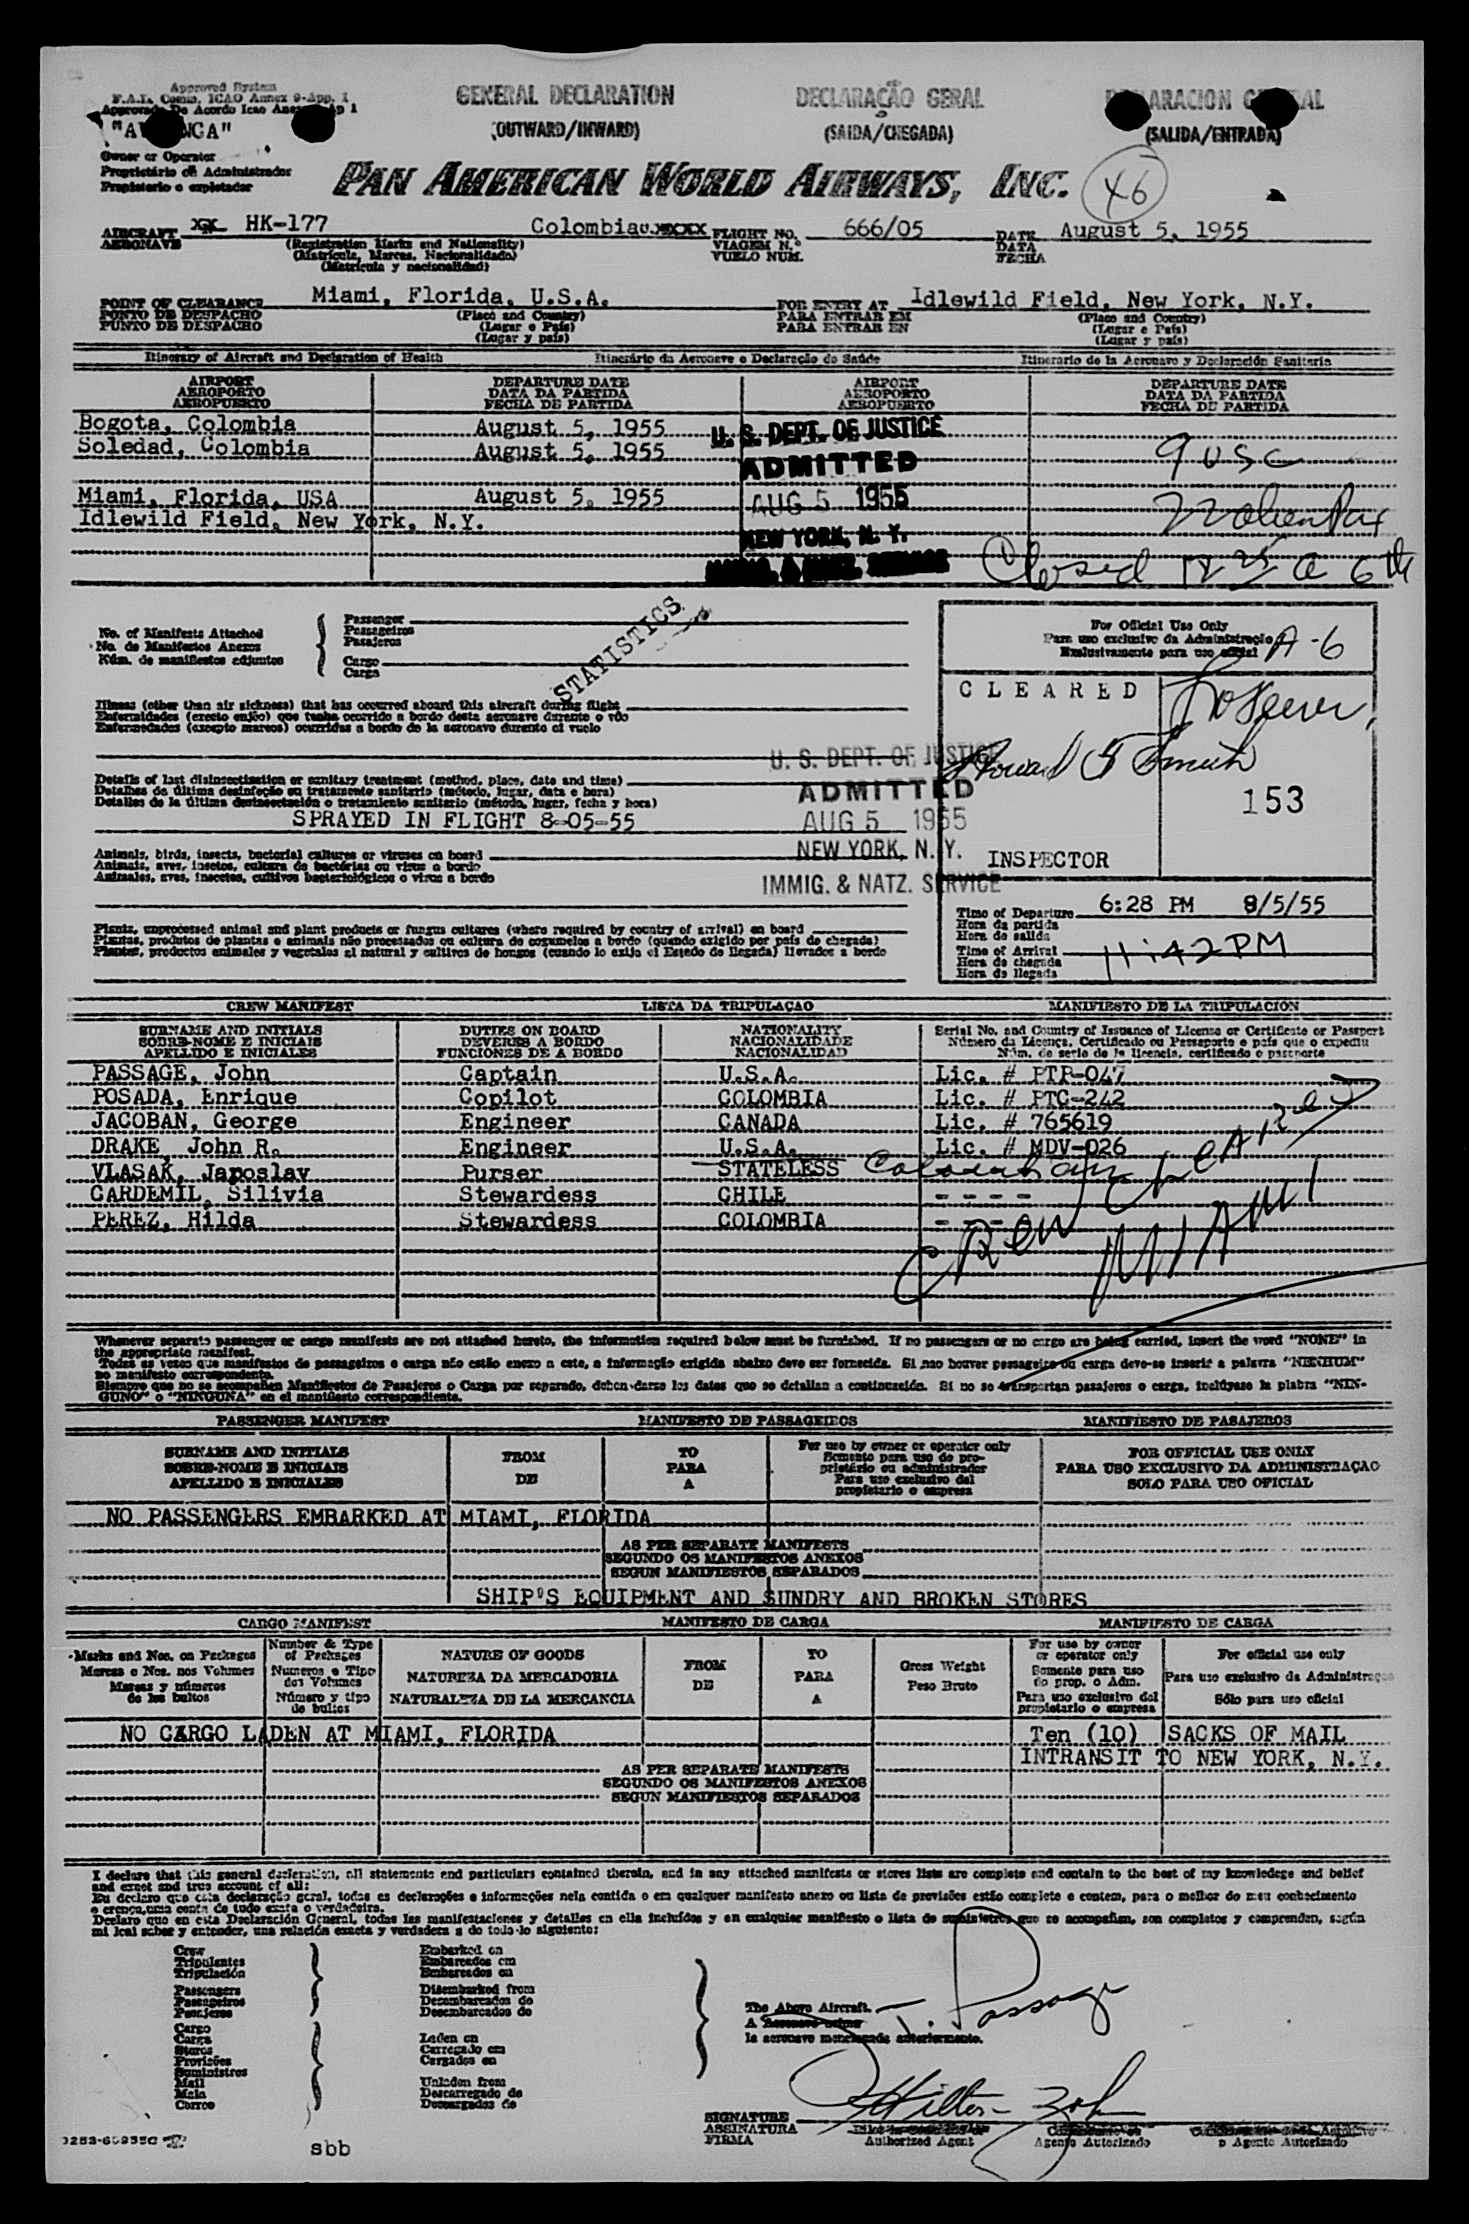 Approved System
F.A.L. Comm. ICAO Annex 9-App. 1
De Acordo Icao
GENERAL DECLARATION
(OUTWARD/INWARD)
DECLARAÇÃO GERAL
(SAIDA/CHEGADA)
(SALIDA/ENTRADA)
Owner or Operator
Proprietário ou Administrador
Propietario o explotador
PAN AMERICAN WORLD AIRWAYS, INC.
46
AIRCRAFT XX HK-177 Colombia
AERONAVE
(Registration Marks and Nationality)
(Matricula, Marcas, Nacionalidado)
(Matricula y nacionalidad)
FLIGHT NO. 666/05
VIAGEM N.º
VUELO NUM.
DATE August 5, 1955
DATA
FECHA
POINT OF CLEARANCE Miami, Florida, U.S.A.
PONTO DE DESPACHO
PUNTO DE DESPACHO
(Place and Country)
(Lugar e País)
(Lugar y país)
FOR ENTRY AT Idlewild Field, New York, N.Y.
PARA ENTRAR EM
PARA ENTRAR EN
(Place and Country)
(Lugar e País)
(Lugar y país)
Itinerary of Aircraft and Declaration of Health
Itinerário da Aeronave e Declaração de Saúde
Itinerario de la Aeronave y Declaración Sanitaria
AIRPORT
AEROPORTO
AEROPUERTO
DEPARTURE DATE
DATA DA PARTIDA
FECHA DE PARTIDA
AIRPORT
AEROPORTO
AEROPUERTO
DEPARTURE DATE
DATA DA PARTIDA
FECHA DE PARTIDA
Bogota, Colombia August 5, 1955
Soledad, Colombia August 5, 1955
Miami, Florida, USA August 5, 1955
Idlewild Field, New York, N.Y.
U. S. DEPT. OF JUSTICE
ADMITTED
AUG 5 1955
NEW YORK, N. Y.
9 USC
Closed 12 25 a 6th
No. of Manifests Attached
No. de Manifestos Anexos
Núm. de manifiestos adjuntos
Passenger
Passageiros
Pasajeros
Cargo
Carga
STATISTICS
For Official Use Only
Para uso exclusivo da Administração
Exclusivamente para uso oficial
A-6
CLEARED
Howard G Smith
153
INSPECTOR
Illness (other than air sickness) that has occurred aboard this aircraft during flight
Enfermidades (exceto enjôo) que tenha ocorrido a bordo desta aeronave durante o vôo
Enfermedades (excepto mareos) ocurridas a bordo de la aeronave durante el vuelo
U. S. DEPT. OF JUSTICE
ADMITTED
AUG 5 1955
NEW YORK, N. Y.
IMMIG. & NATZ. SERVICE
Details of last disinsectization or sanitary treatment (method, place, date and time)
Detalhes da última desinfeção ou tratamento sanitario (método, lugar, data e hora)
Detalles de la última desinsectación o tratamiento sanitario (método, lugar, fecha y hora)
SPRAYED IN FLIGHT 8-05-55
Animals, birds, insects, bacterial cultures or viruses on board
Animais, aves, insetos, cultura de bactérias ou virus a bordo
Animales, aves, insectos, cultivos bacteriológicos o virus a bordo
Plants, unprocessed animal and plant products or fungus cultures (where required by country of arrival) on board
Plantas, produtos de plantas e animais não processados ou cultura de cogumelos a bordo (quando exigido por país de chegada)
Plantas, productos animales y vegetales al natural y cultivos de hongos (cuando lo exija el Estado de llegada) llevados a bordo
Time of Departure 6:28 PM 8/5/55
Hora da partida
Hora de salida
Time of Arrival 11:42 PM
Hora de chegada
Hora de llegada
CREW MANIFEST
LISTA DA TRIPULAÇAO
MANIFIESTO DE LA TRIPULACION
SURNAME AND INITIALS
SOBRE-NOME E INICIAIS
APELLIDO E INICIALES
DUTIES ON BOARD
DEVERES A BORDO
FUNCIONES DE A BORDO
NATIONALITY
NACIONALIDADE
NACIONALIDAD
Serial No. and Country of Issuance of License or Certificate or Passport
Número da Licença, Certificado ou Passaporte e país que o expediu
Núm. de serie de la licencia, certificado o pasaporte
PASSAGE, John Captain U.S.A. Lic. # PTP-047
POSADA, Enrique Copilot COLOMBIA Lic. # PTC-242
JACOBAN, George Engineer CANADA Lic. # 765619
DRAKE, John R. Engineer U.S.A. Lic. # MDV-026
VLASAK, Jaroslav Purser STATELESS Colombian
CARDEMIL, Silivia Stewardess CHILE - - - -
PEREZ, Hilda Stewardess COLOMBIA
Crew Cleared
MIAMI
Whenever separate passenger or cargo manifests are not attached hereto, the information required below must be furnished. If no passengers or no cargo are being carried, insert the word "NONE" in
the appropriate manifest.
Todas as vezes que manifestos de passageiros e carga não estão anexo a este, a informação exigida abaixo deve ser fornecida. Si nao houver passageiro ou carga deve-se inserir a palavra "NENHUM"
no manifesto correspondente.
Siempre que no se acompañen Manifiestos de Pasajeros o Carga por separado, deben darse los datos que se detallan a continuación. Si no se transportan pasajeros o carga, inclúyase la plabra "NIN-
GUNO" o "NINGUNA" en el manifiesto correspondiente.
PASSENGER MANIFEST
MANIFESTO DE PASSAGEIROS
MANIFIESTO DE PASAJEROS
SURNAME AND INITIALS
SOBRE-NOME E INICIAIS
APELLIDO E INICIALES
FROM
DE
TO
PARA
A
For use by owner or operator only
Somento para uso do pro-
prietário ou administrador
Para uso exclusivo del
propietario o empresa
FOR OFFICIAL USE ONLY
PARA USO EXCLUSIVO DA ADMINISTRAÇAO
SOLO PARA USO OFICIAL
NO PASSENGERS EMBARKED AT MIAMI, FLORIDA
AS PER SEPARATE MANIFESTS
SEGUNDO OS MANIFESTOS ANEXOS
SEGUN MANIFIESTOS SEPARADOS
SHIP'S EQUIPMENT AND SUNDRY AND BROKEN STORES
CARGO MANIFEST
MANIFESTO DE CARGA
MANIFIESTO DE CARGA
Marks and Nos. on Packages
Marcas e Nos. nos Volumes
Marcas y números
de los bultos
Number & Type
of Packages
Numeros e Tipo
dos Volumes
Número y tipo
de bultos
NATURE OF GOODS
NATUREZA DA MERCADORIA
NATURALEZA DE LA MERCANCIA
FROM
DE
TO
PARA
A
Gross Weight
Peso Bruto
For use by owner
or operator only
Somente para uso
do prop. o Adm.
Para uso exclusivo del
propietario o empresa
For official use only
Para uso exclusivo da Administraçao
Sólo para uso oficial
NO CARGO LADEN AT MIAMI, FLORIDA
Ten (10) SACKS OF MAIL
INTRANSIT TO NEW YORK, N.Y.
AS PER SEPARATE MANIFESTS
SEGUNDO OS MANIFESTOS ANEXOS
SEGUN MANIFIESTOS SEPARADOS
I declare that this general declaration, all statements and particulars contained therein, and in any attached manifests or stores lists are complete and contain to the best of my knowledege and belief
and exact and true account of all:
Eu declaro que esta declaração geral, todas as declarações e informações nela contida e em qualquer manifesto anexo ou lista de provisões estão complete e contem, para o melhor do meu conhecimento
e crença, uma conta de tudo exata o verdadeira.
Declaro que en esta Declaración General, todas las manifestaciones y detalles en ella incluídos y en cualquier manifiesto o lista de suministros que se acompañan, son completos y comprenden, según
mi leal saber y entender, una relación exacta y verdadera a de todo lo siguiente:
Crew
Tripulantes
Tripulación
Passengers
Passageiros
Pasajeros
Cargo
Carga
Stores
Provisões
Suministros
Mail
Mala
Correo
Embarked on
Embarcados em
Embarcados en
Disembarked from
Desembarcados do
Desembarcados de
Laden on
Carregado em
Cargados en
Unladen from
Descarregado de
Descargados de
The Above Aircraft.
A Aeronave acima
la aeronave mencionada anteriormente.
J. Passage
SIGNATURE
ASSINATURA
FIRMA
Authorized Agent
Agente Autorizado
o Agente Autorizado
sbb